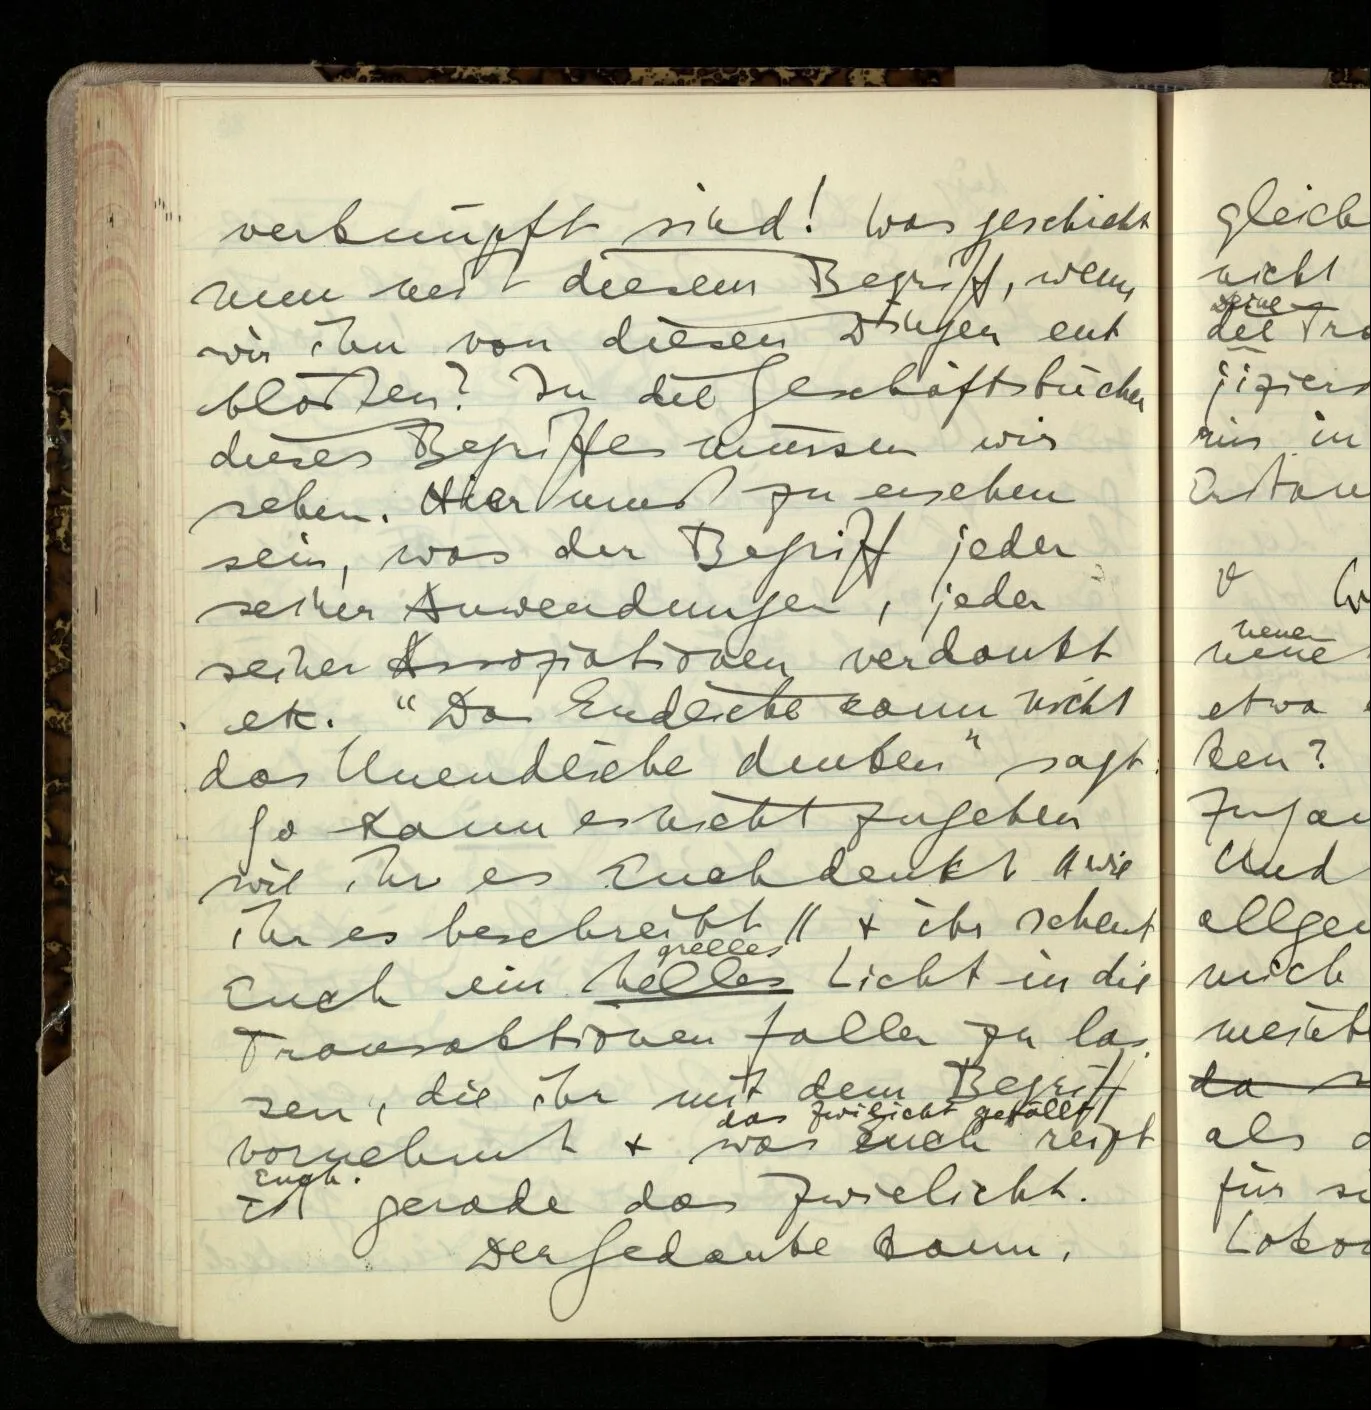 verknüpft sind! Was geschieht
nun mit diesem Begriff, wenn
wir ihn von diesen Dingen ent
blößen? In die Geschäftsbücher
dieses Begriffes müssen wir
sehen. Hier muß zu ersehen
sein, was der Begriff jeder
seiner Anwendungen, jeder
seiner Assoziationen verdankt
etc. “Das Endliche kann nicht
das Unendliche denken” sagt
So kann es nicht zugehen
wie ihr es Euch denkt // wie
ihr es beschreibt // + ihr scheut
grelles
Euch ein helles Licht in die
Transaktionen fallen zu las
sen, die ihr mit dem Begriff
das Zwielicht gefällt
vornehmt + was Euch reizt
Euch.
ist gerade das Zwielicht.
Der Gedanke kann,
gleich
nicht
seine
die Tra
jiziers
rus in
∀
neuen
neue
etwa
ken?
Zugan
Und
allgem
mich
meist
da s
als
für
Loko